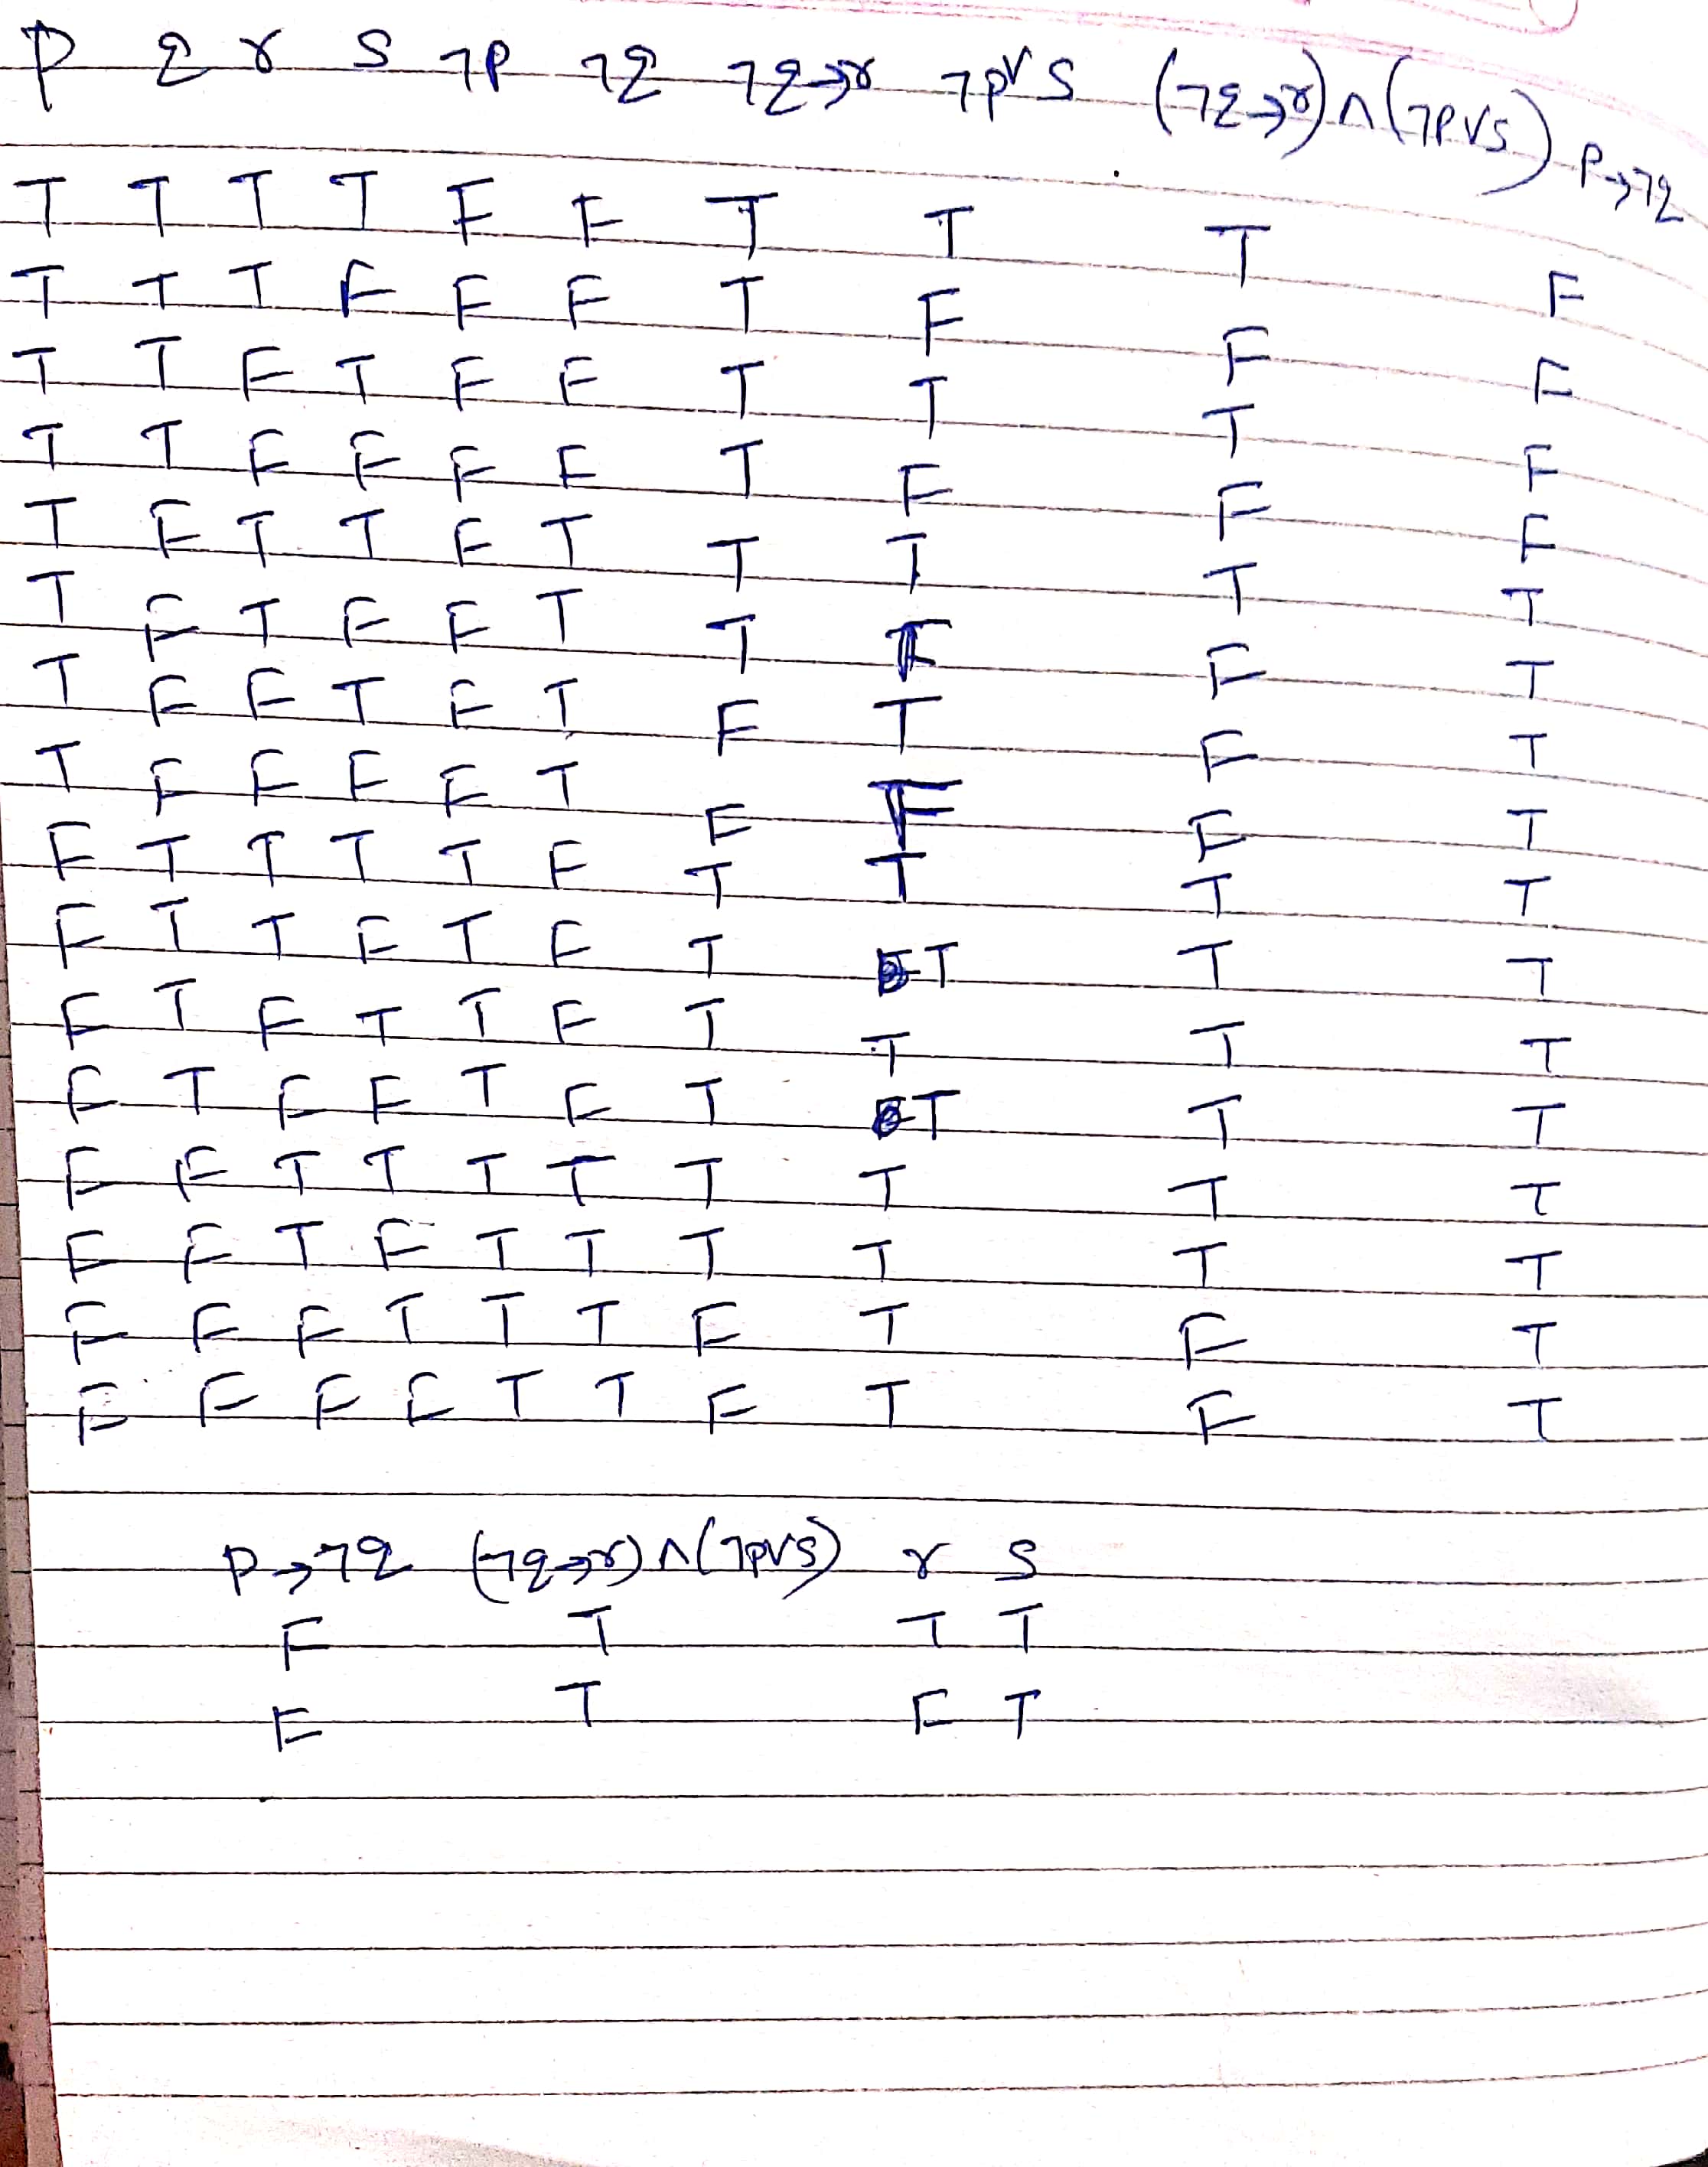 p q r s ¬p ¬q ¬q→r ¬p∨s (¬q→r)∧(¬p∨s) p→¬q
T T T T F F T T T F
T T T F F F T F F F
T T F T F F T T T F
T T F F F F T F F F
T F T T F T T T T T
T F T F F T T F F T
T F F T F T F T F T
T F F F F T F F F T
F T T T T F T T T T
F T T F T F T T T T
F T F T T F T T T T
F T F F T F T T T T
F F T T T T T T T T
F F T F T T T T T T
F F F T T T F T F T
F F F F T T F T F T
p→¬q (¬q→r)∧(¬p∨s) r s
F T T T
F T F T